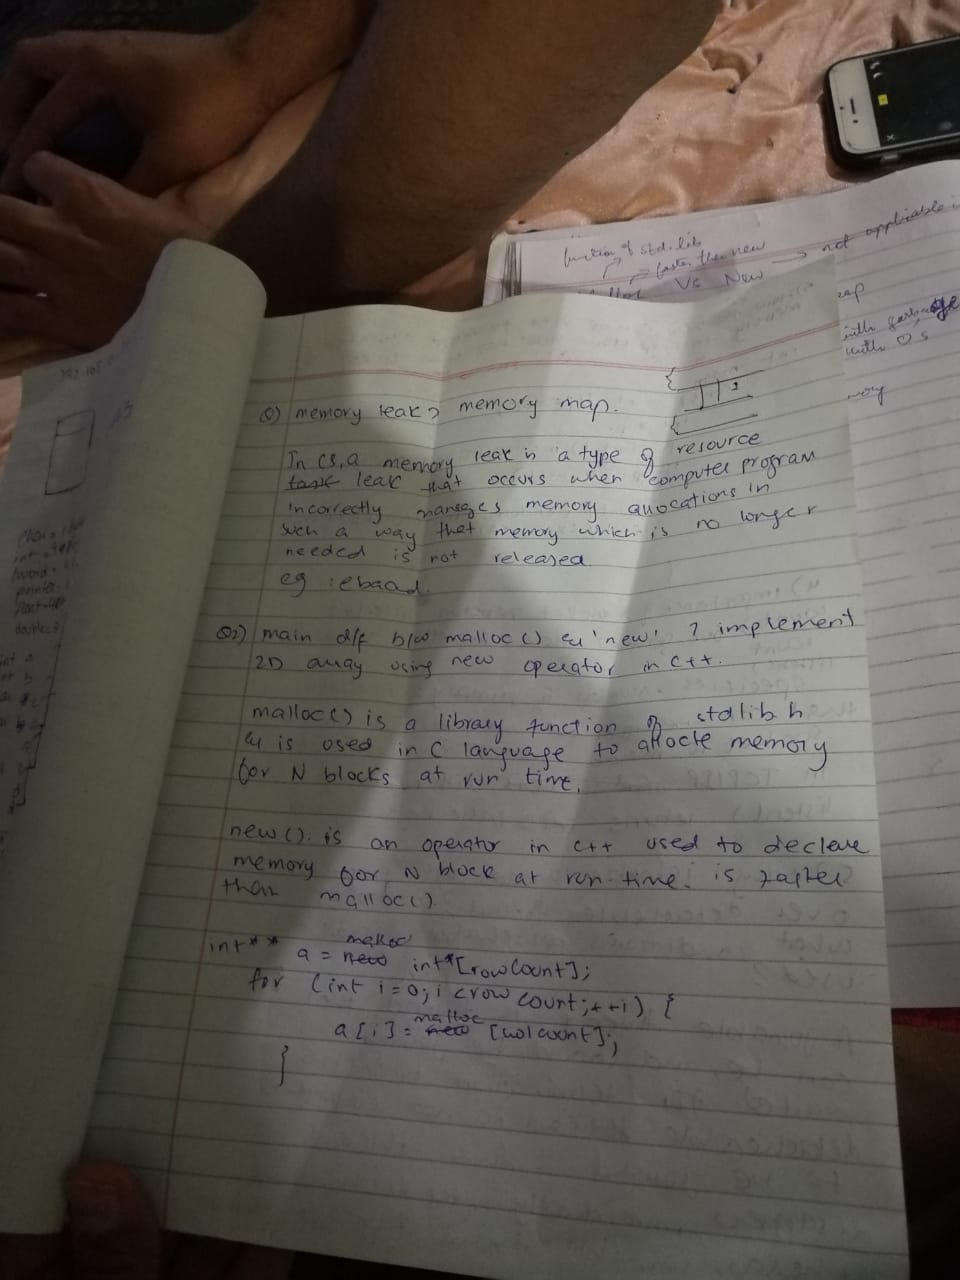 function of std.lib
faster then new
Vs New → not applicable
with garbage
with OS
Q) memory leak? memory map.
In cs, a memory leak is a type of resource
leak that occurs when computer program
incorrectly manages memory allocations in
such a way that memory which is no longer
needed is not released
eg : ebaad.
Q2) main d/f b/w malloc() & 'new' ? implement
2D array using new operator in C++.
malloc() is a library function of stdlib h
& is used in C language to allocte memory
for N blocks at run time.
new(). is an operator in C++ used to declere
memory for N block at run time. is faster
than malloc()
int** a = malloc int*[rowCount];
for (int i=0; i<row count; ++i) {
a[i] = malloc [colcount];
}